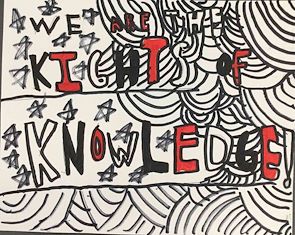 WE ARE THE
KIGHT OF
KNOWLEDGE!